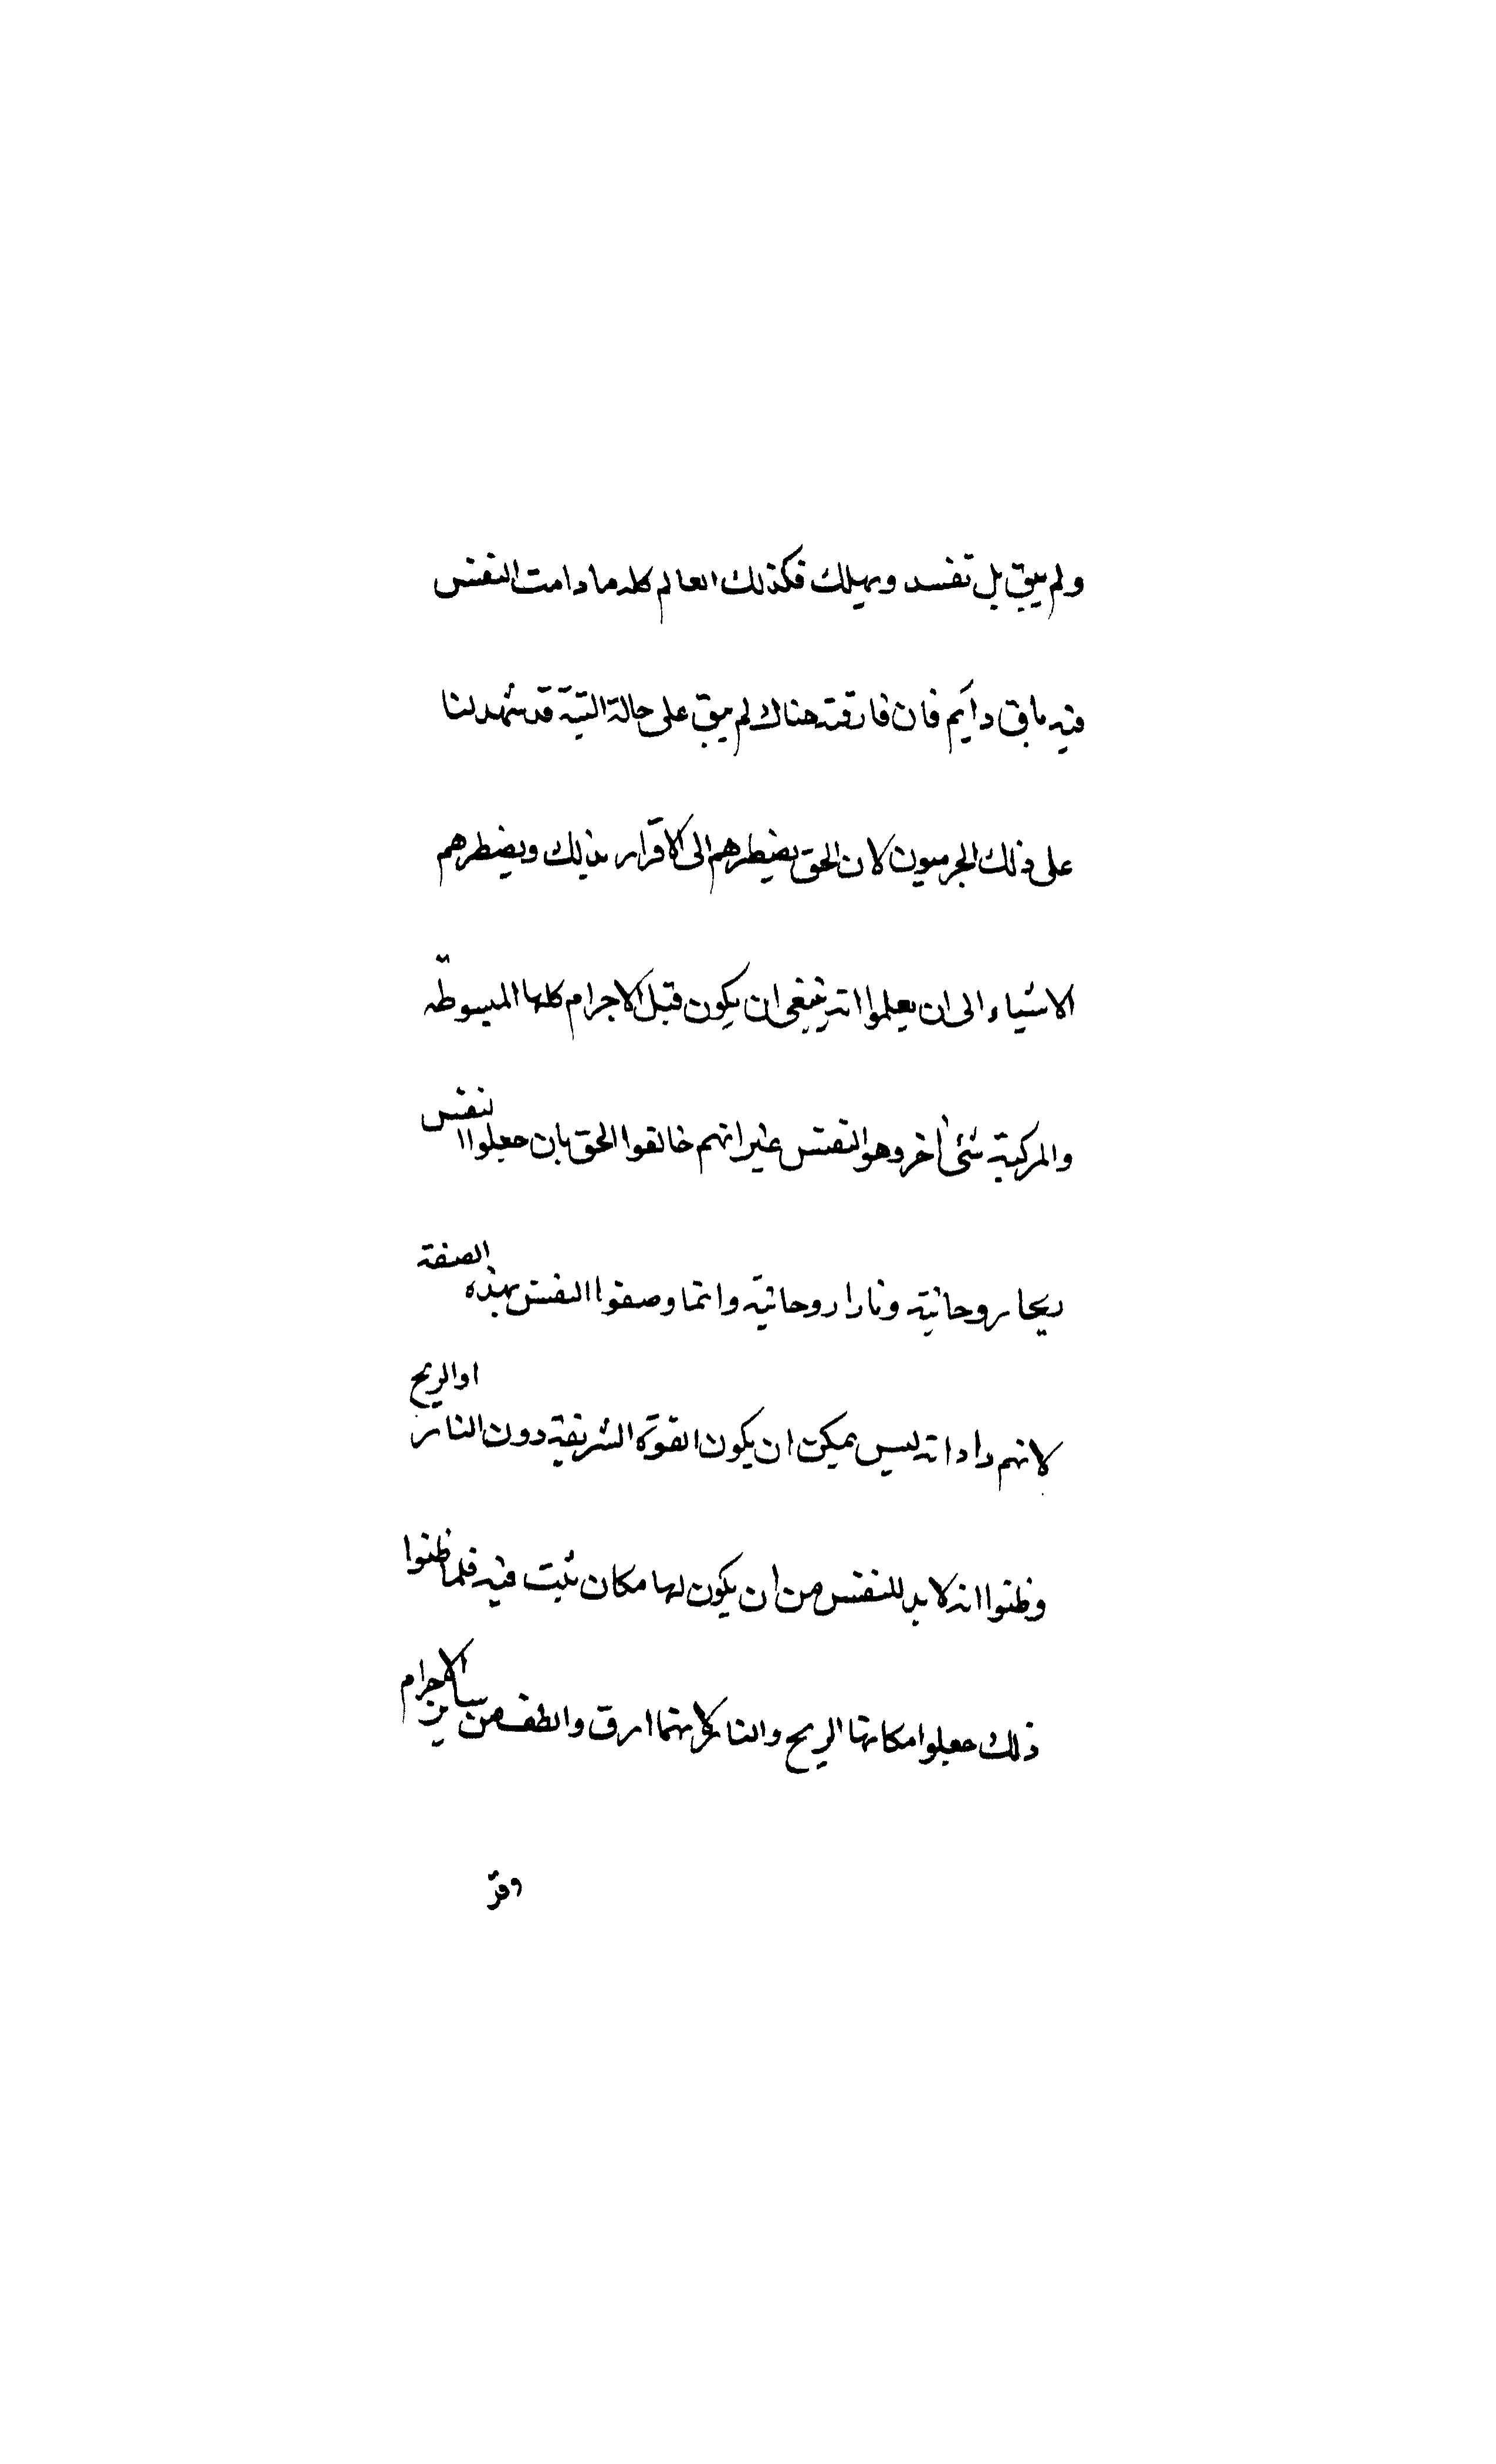 ولم يبق بل تفسد ويهلك فكذلك العالم كله ما دامت النفس
فيه باق دآيم فان فارقته هناك لم يبق على حالة التية قد شهد لنا
على ذلك الجرميون لان الحق يضطرهم الى الاقرار بذلك ويضطرهم
الاشياء الى ان يعلموا انه ينبغى ان يكون قبل الاجرام كلها المبسوطة
والمركبة شئ أخر وهو النفس غير انهم خالفوا الحق بان جعلوا النفس
ريحا روحانية ونارا روحانية وانما وصفوا النفس بهذه الصفة
لانهم راوا انه ليس يمكن ان يكون القوة الشريفة دون النار او الريح
وظنوا انه لا بد للنفس من ان يكون لها مكان تثبت فيه فلما ظنوا
ذلك جعلوا مكانها الريح والنار لانهما ارق والطف من ساير الاجرام